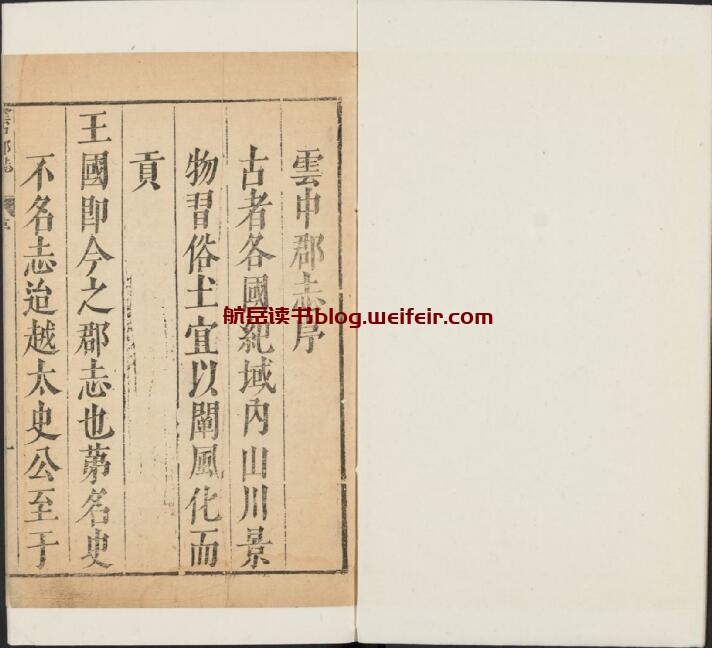 雲中郡志序
古者各國紀域內山川景
物習俗土宜以闡風化而
貢
王國即今之郡志也苐名史
不名志迨越太史公至于
航岳读书blog.weifeir.com